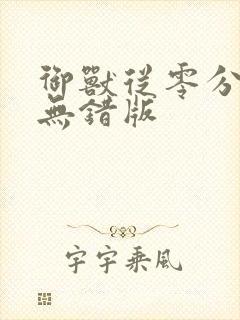 御獸從零分
無錯版
宇宇乘風